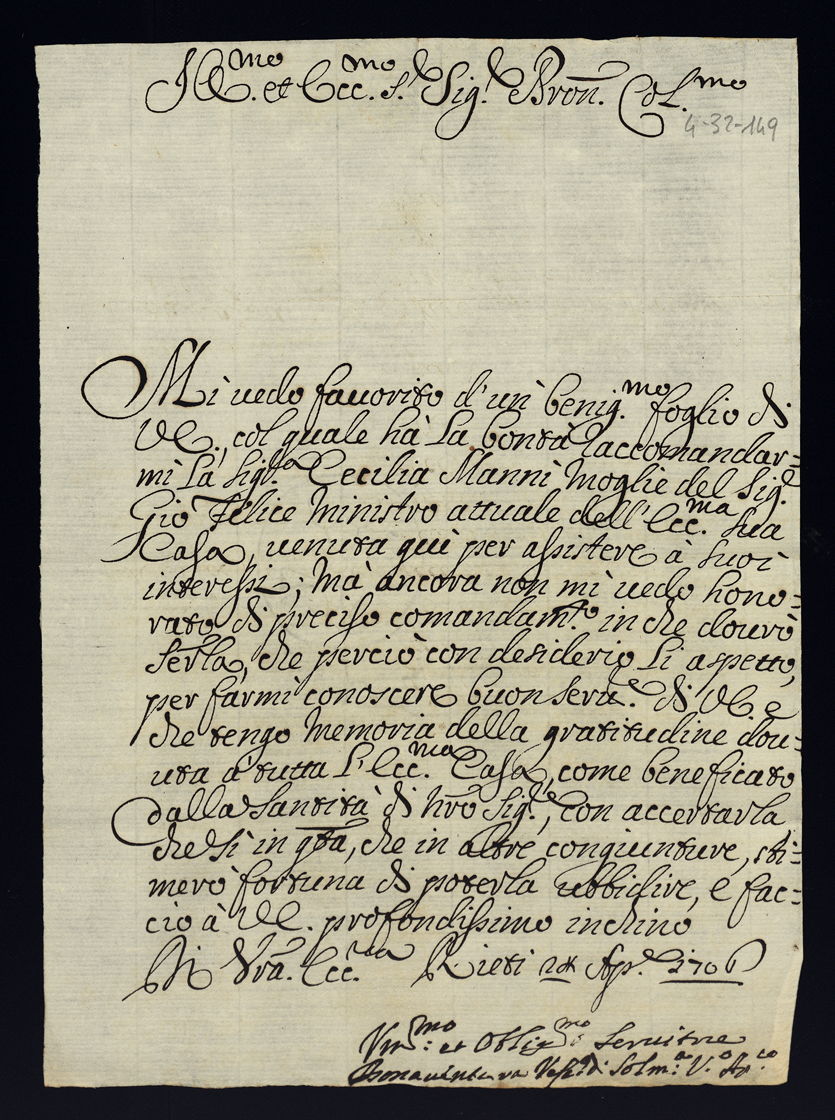 Ill.mo et Ecc.mo S.r Sig.r Pron. Col.mo
4-32-149
Mi uedo fauorito d'un benig.mo foglio di
VE., col quale hà la bontà raccomandar=
mi la Sig.ra Cecilia Manni Moglie del Sig.r
Gio Felice Ministro attuale dell'Ecc.ma sua
Casa, uenuta quì per assistere à suoi
interessi; mà ancora non mi uedo hono=
rato di preciso comandam.to in che dourò
serla, che perciò con desiderio li aspetto,
per farmi conoscere buon seru.e di VE e
che tengo memoria della gratitudine dou=
uta à tutta l'Ecc.ma Casa, come beneficato
dalla Santità di nro Sig.e, con accertarla
che sì in qta, che in altre congiunture, sti=
merò fortuna di poterla ubbidire, e fac=
cio à VE. profondissimo inchino
Di Vra. Ecc.za Rieti Ap.e 1706
Vm.mo et Oblig.mo Seruitore
Bonauintura